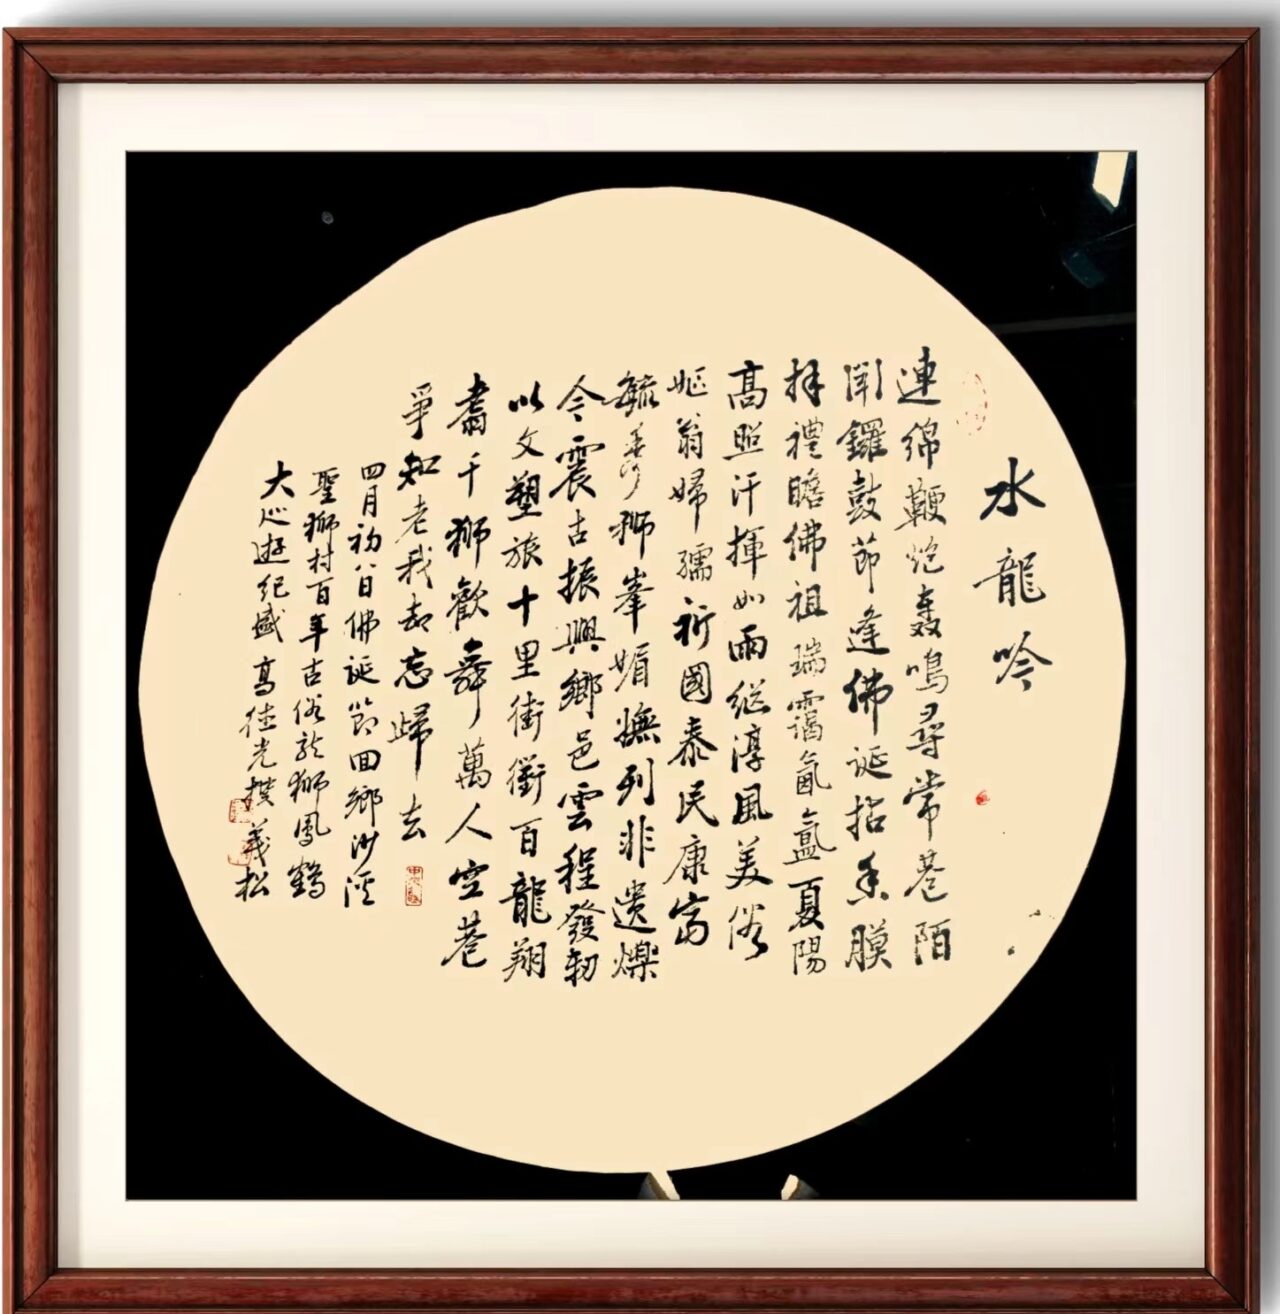 水龍吟
連綿鞭炮轟鳴尋常巷陌
閙鑼鼓節逢佛誕拈香膜
拜禮瞻佛祖瑞靄氤氳夏陽
高照汗揮如雨繼淳風美俗
嫗翁婦孺祈國泰民康富
毓秀獅峯媚嫵列非遺爍
今震古振興鄉邑雲程發軔
以文塑旅十里街衢百龍翔
翥千獅歡舞萬人空巷
爭知老我却忘歸去
四月初八日佛誕節回鄉沙溪
聖獅村百年古俗龍獅鳳鶴
大巡遊紀盛 高佳光撰 義松